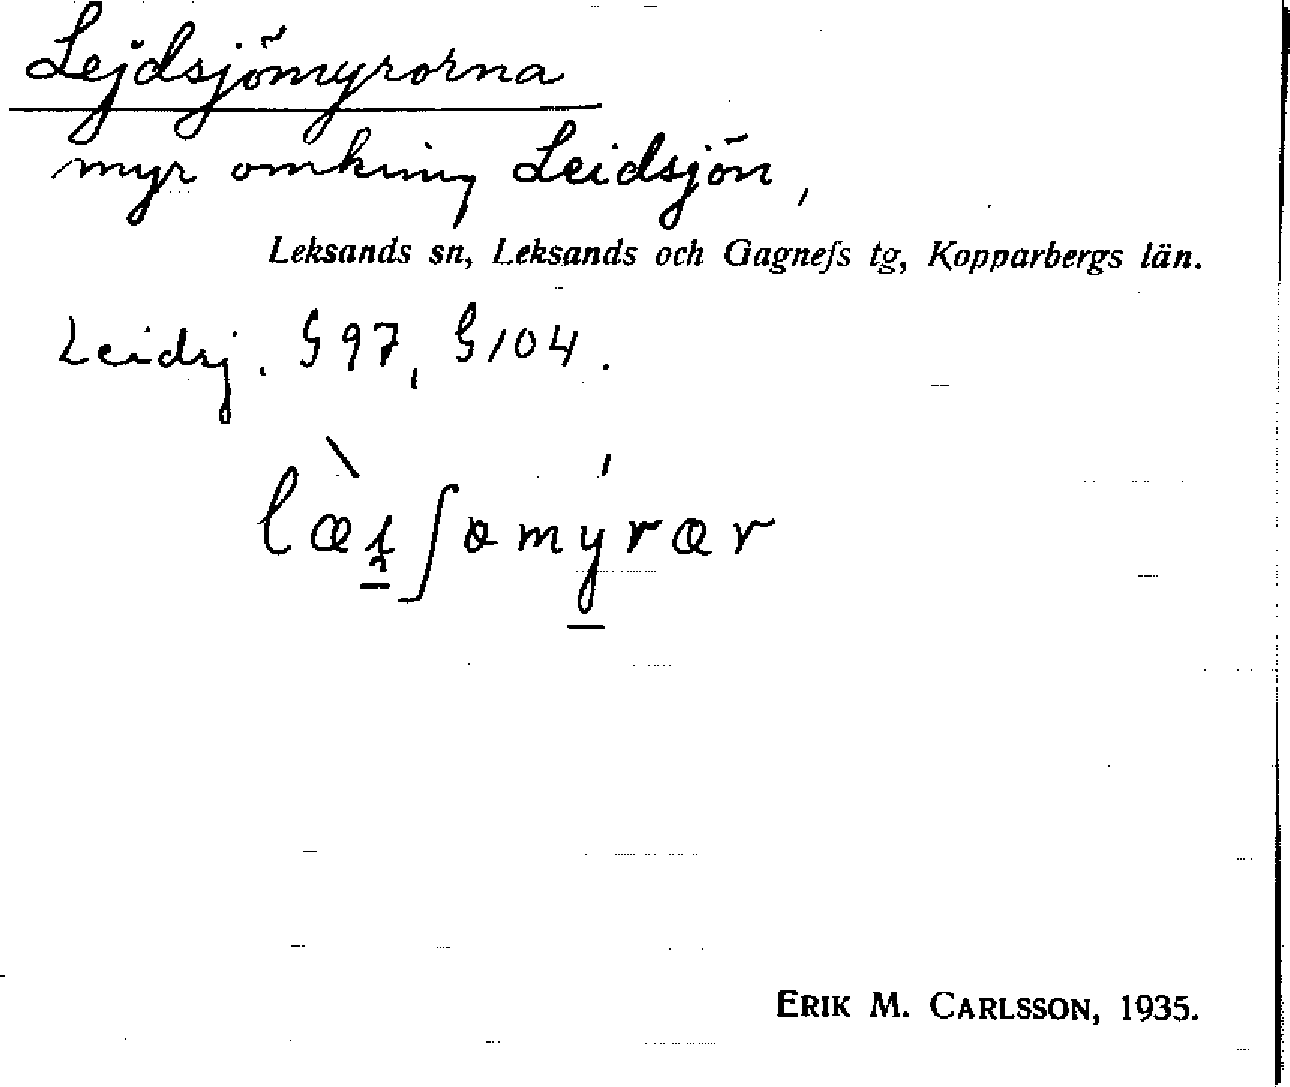 Lejdsjömyrorna
myr omkring Leidsjön,
Leksands sn, Leksands och Gagnefs tg, Kopparbergs län.
Leidsj. G 97, G 104.
ERIK M. CARLSSON, 1935.